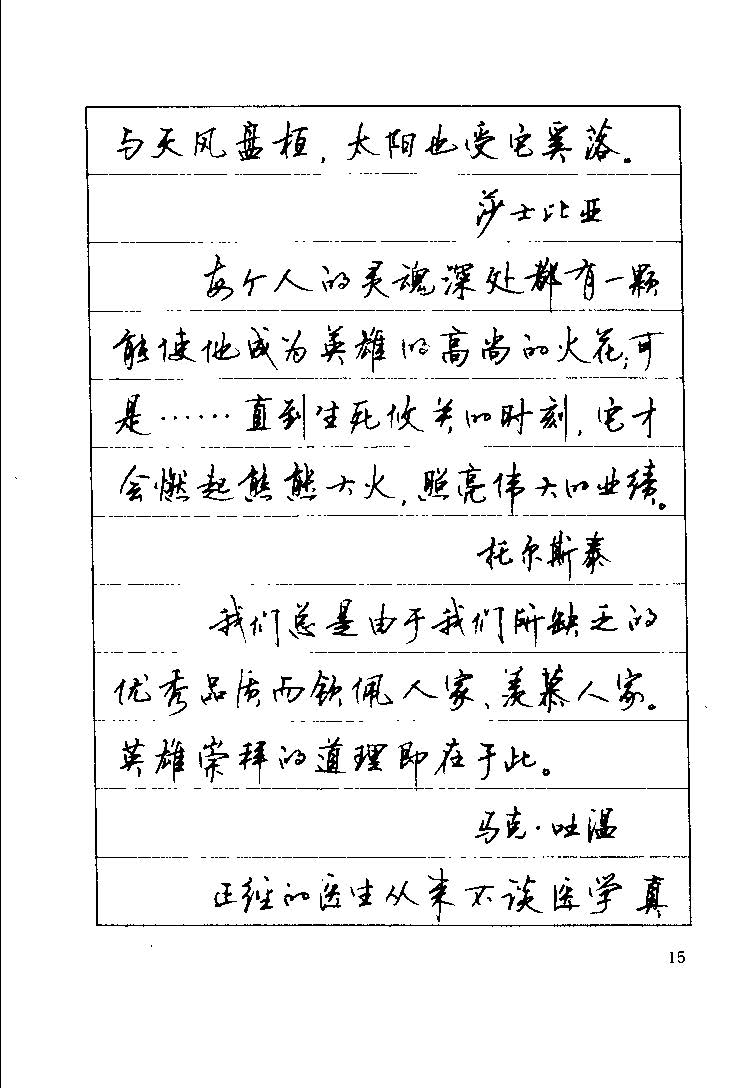 与天风盘桓，太阳也受它奚落。
莎士比亚
每个人的灵魂深处都有一颗
能使他成为英雄的高尚的火花；可
是……直到生死攸关的时刻，它才
会燃起熊熊大火，照亮伟大的业绩。
托尔斯泰
我们总是由于我们所缺乏的
优秀品质而钦佩人家、羡慕人家。
英雄崇拜的道理即在于此。
马克·吐温
正经的医生从来不谈医学真
15